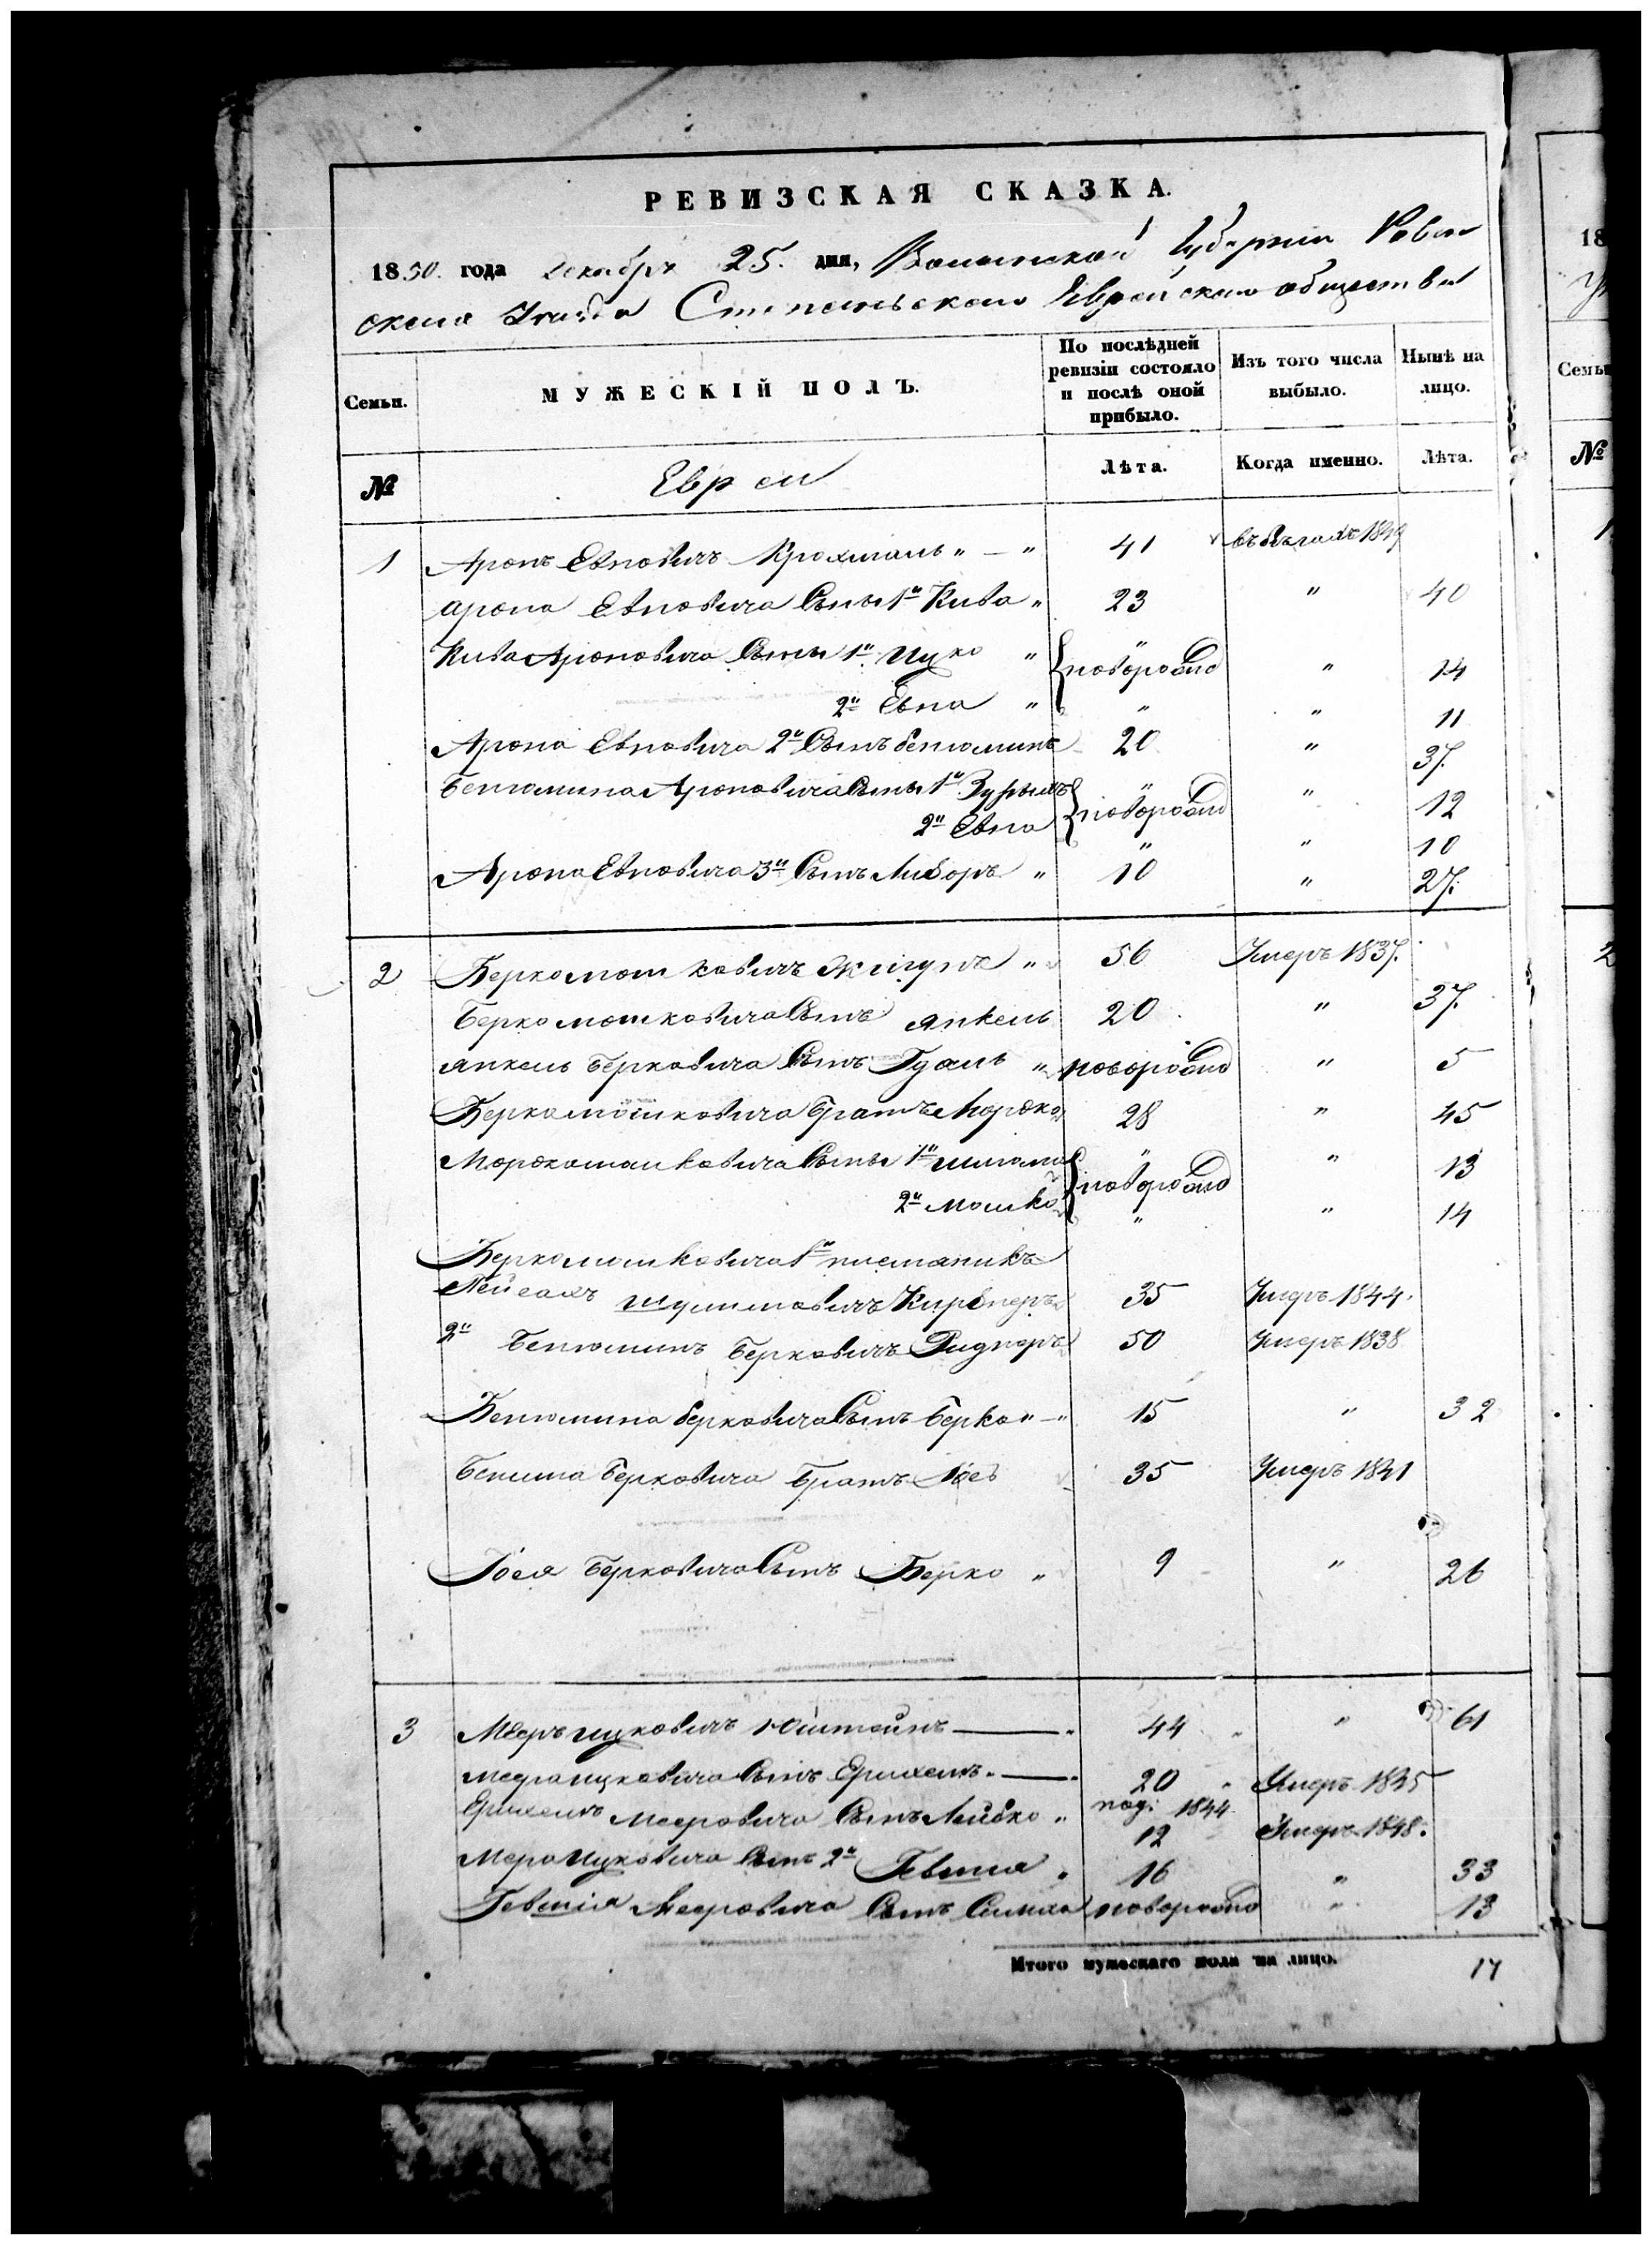 РЕВИЗСКАЯ СКАЗКА.
1850. года декабря 25. дня, Волынской Губернии Ровен
скаго Уезда Степаньскаго Еврейскаго общества
Семьи.
МУЖЕСКІЙ ПОЛЪ.
По послѣдней ревизіи состояло и послѣ оной прибыло.
Изъ того числа выбыло.
Нынѣ на лицо.
№
Евреи
Лѣта.
Когда именно.
Лѣта.
1 Аронъ Евновичъ Крохмаль " — " 41 въ бегахъ 1849
Арона Евновича Сыны 1й Кива " 23 " 40
Кива Ароновича Сыны 1й Ицко " новорожд " 14
2й Евна " " " 11
Арона Евновича 2й Сынъ Бенюминъ 20 " 37.
Бенюмина Ароновича Сыны 1й новорожд " 12
2й Евна " " 10
Арона Евновича 3й Сынъ Лейзоръ " 10 " 27.
2 Берко Мошковичъ " 56 Умеръ 1837.
Берко Мошковича Сынъ Янкель 20 " 37.
Янкель Берковича Сынъ " новорожд " 5
Берко Мошковича Братъ Мордко 28 " 45
Мордко Мошковича Сыны 1й новорожд " 13
2й Мошко " " 14
Берко Мошковича 1й племяникъ
Пейсахъ 35 Умеръ 1844.
2й Бенюминъ Берковичъ 50 Умеръ 1838
Бенюмина Берковича Сынъ Берко " — " 15 " 32
Берковича Братъ 35 Умеръ 1841
Берковича Сынъ Берко " 9 " 26
3 Мееръ Ицковичъ 44 " 61
Меера Ицковича Сынъ 20 Умеръ 1845
Мееровича Сынъ Лейбко " 1844 12 Умеръ 1848.
Меера Ицковича Сынъ 2й Гевшія " 16 " 33
Гевшія Мееровича Сынъ Симха новорожд " 13
Итого мужескаго пола на лицо. 17
18
Семьи
№
1
2